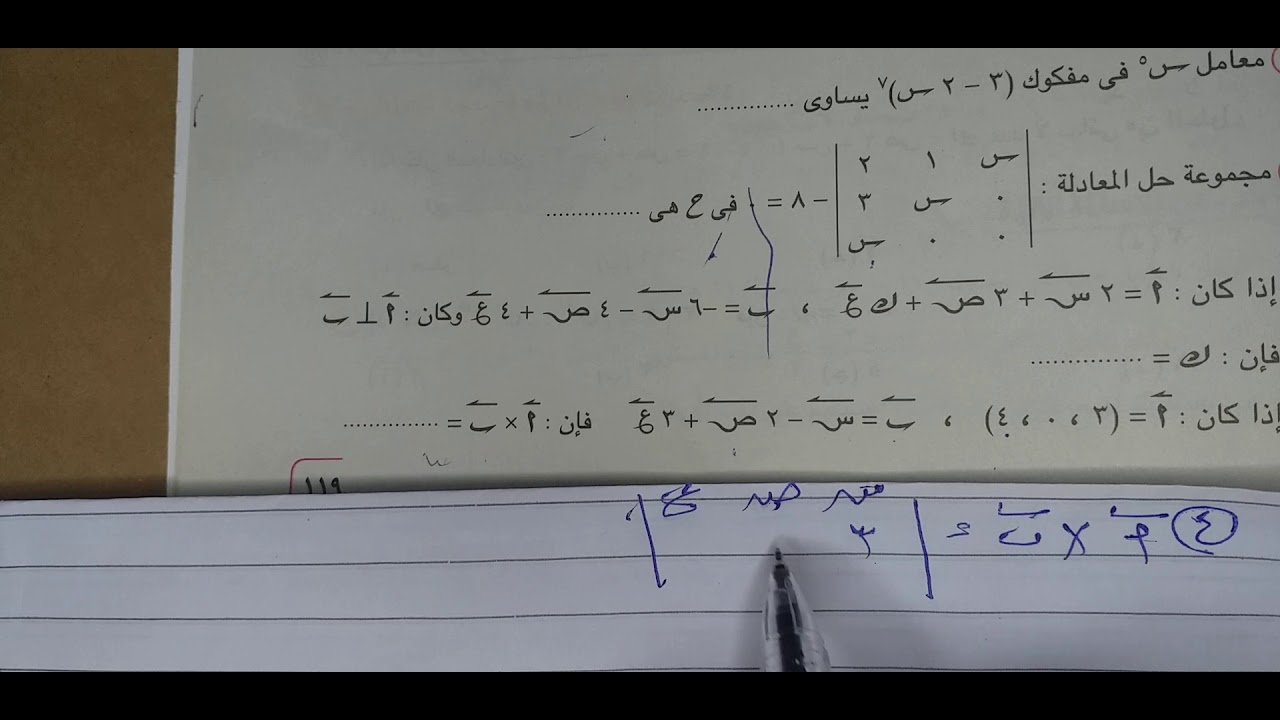 معامل س⁵ فى مفكوك (٣ - ٢ س)⁷ يساوى ...............
س ١ ٢
مجموعة حل المعادلة : ٠ س ٣ - ٨ = ٠ فى ح هى ...............
٠ ٠ س
إذا كان : أ = ٢ س + ٣ ص + ك ع ، ب = -٦ س - ٤ ص + ٤ ع وكان : أ ⊥ ب
فإن : ك = ...............
إذا كان : أ = (٣ ، ٠ ، ٤) ، ب = س - ٢ ص + ٣ ع فإن : أ × ب = ...............
١١٩
س ص ع
٤ أ × ب = ٣